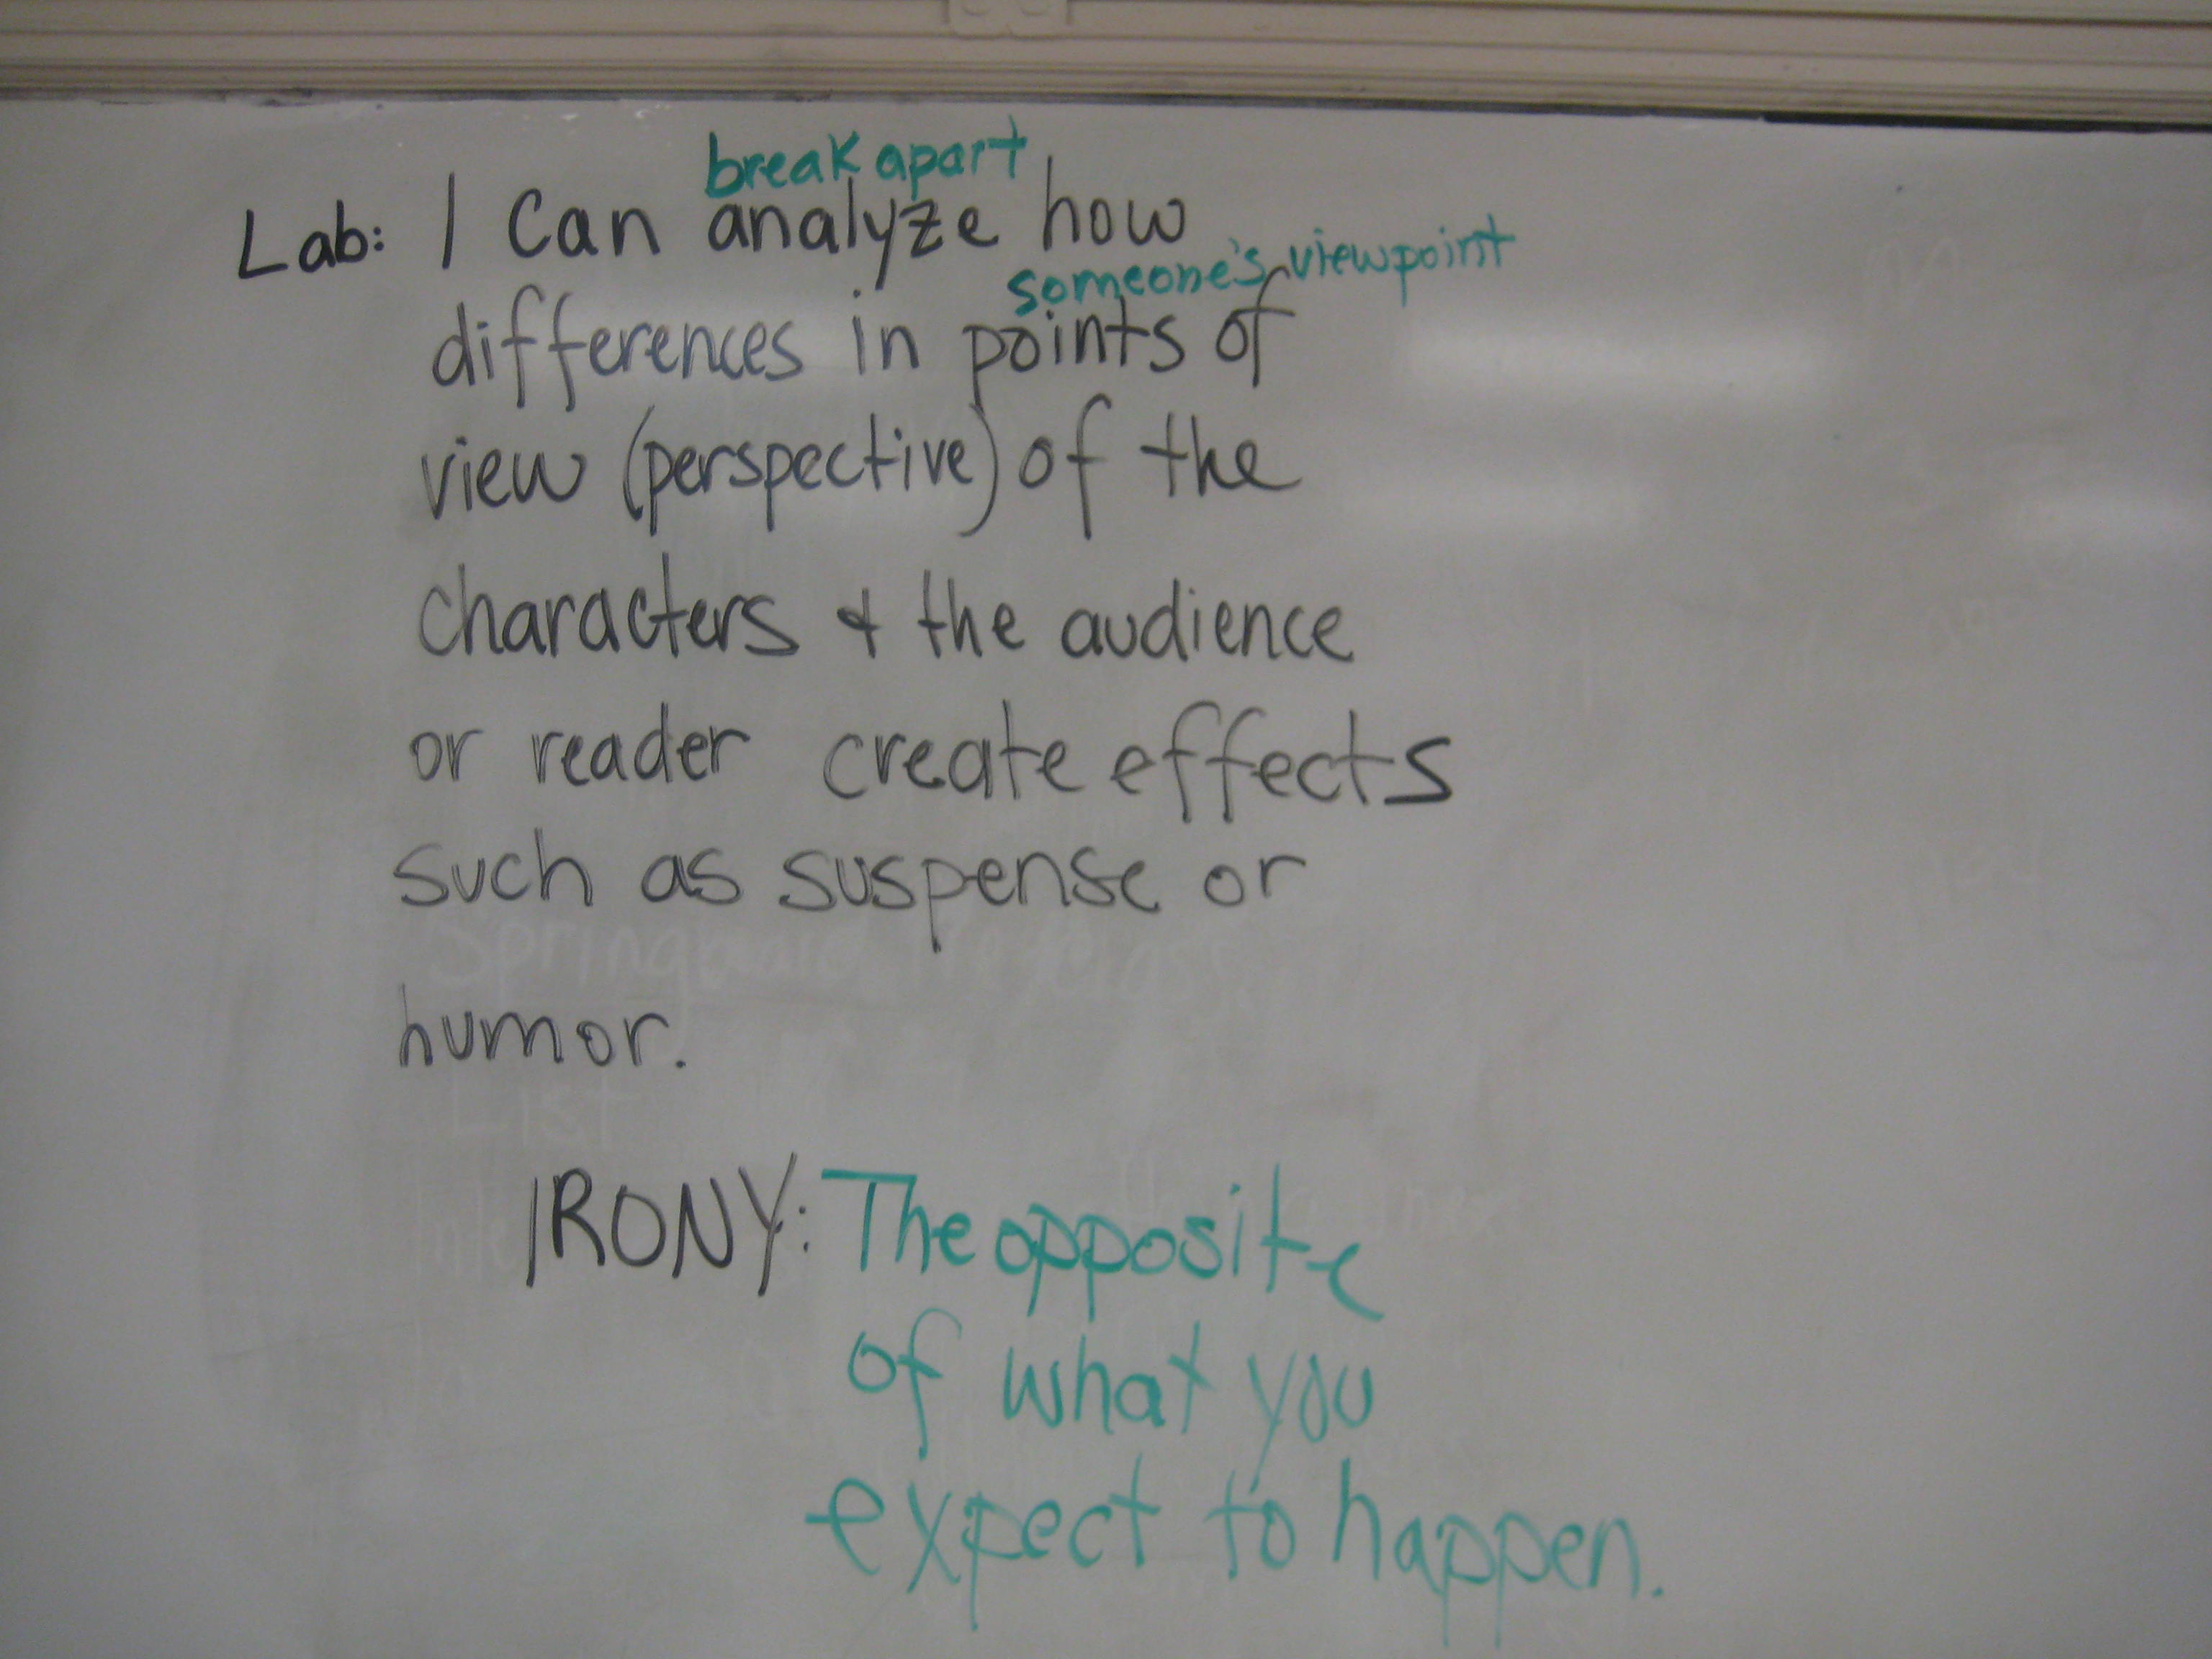 break apart
Lab: I can analyze how
someone's viewpoint
differences in points of
view (perspective) of the
characters & the audience
or reader create effects
such as suspense or
humor.
List
IRONY: The opposite
of what you
expect to happen.